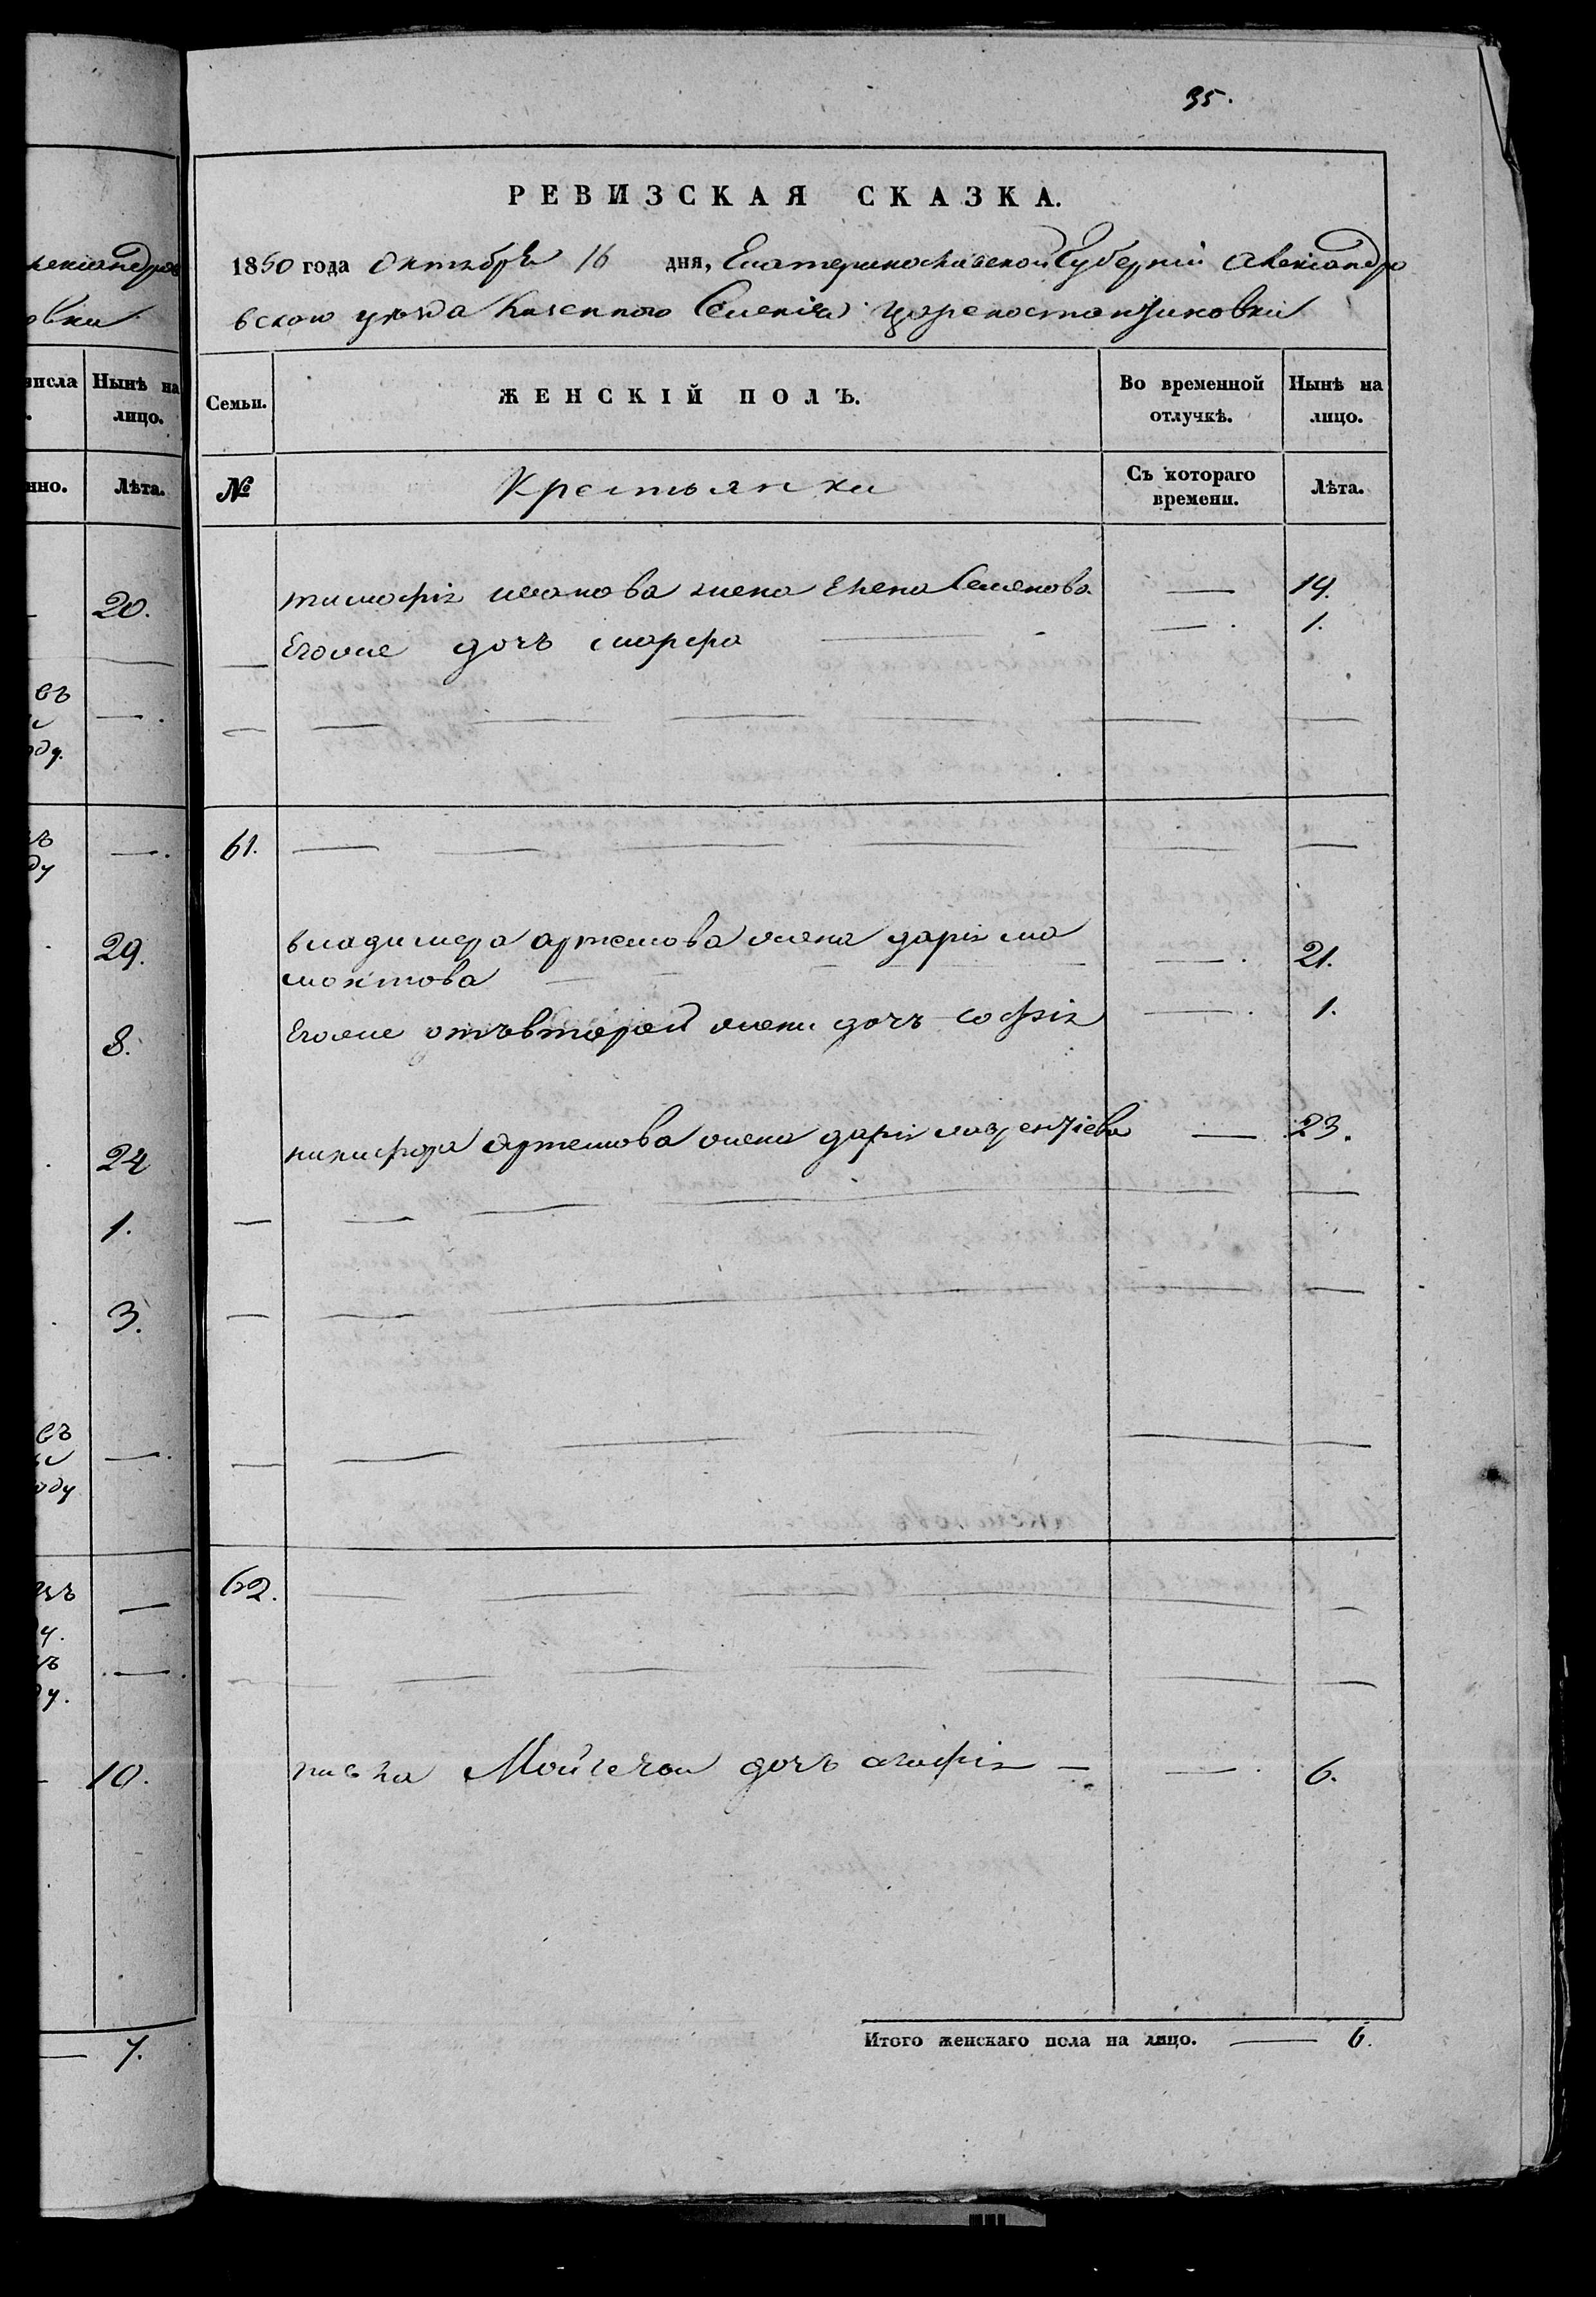 35.
РЕВИЗСКАЯ СКАЗКА.
1850 года Октября 16 дня, Екатеринославской Губерніи Александро
вскаго уезда Казеннаго Селенія Цареконстантиновки
Семьи.
ЖЕНСКІЙ ПОЛЪ.
Во временной отлучкѣ.
Нынѣ на лицо.
№
Крестьянки
Съ котораго времени.
Лѣта.
тимофія иванова жена Елена Семенова — 19.
Егоже дочь марфа — 1.
61.
владимера артемова жена дарія ма
монтова — 21.
Егоже отъ второй жены дочь софія — 1.
никифора Артемова жена дарія лаврентіева — 23.
62.
Мойсеева дочь агафія — 6.
Итого женскаго пола на лицо. — 6.
Нынѣ на
лицо.
Лѣта.
20.
29.
8.
24
1.
3.
10.
7.